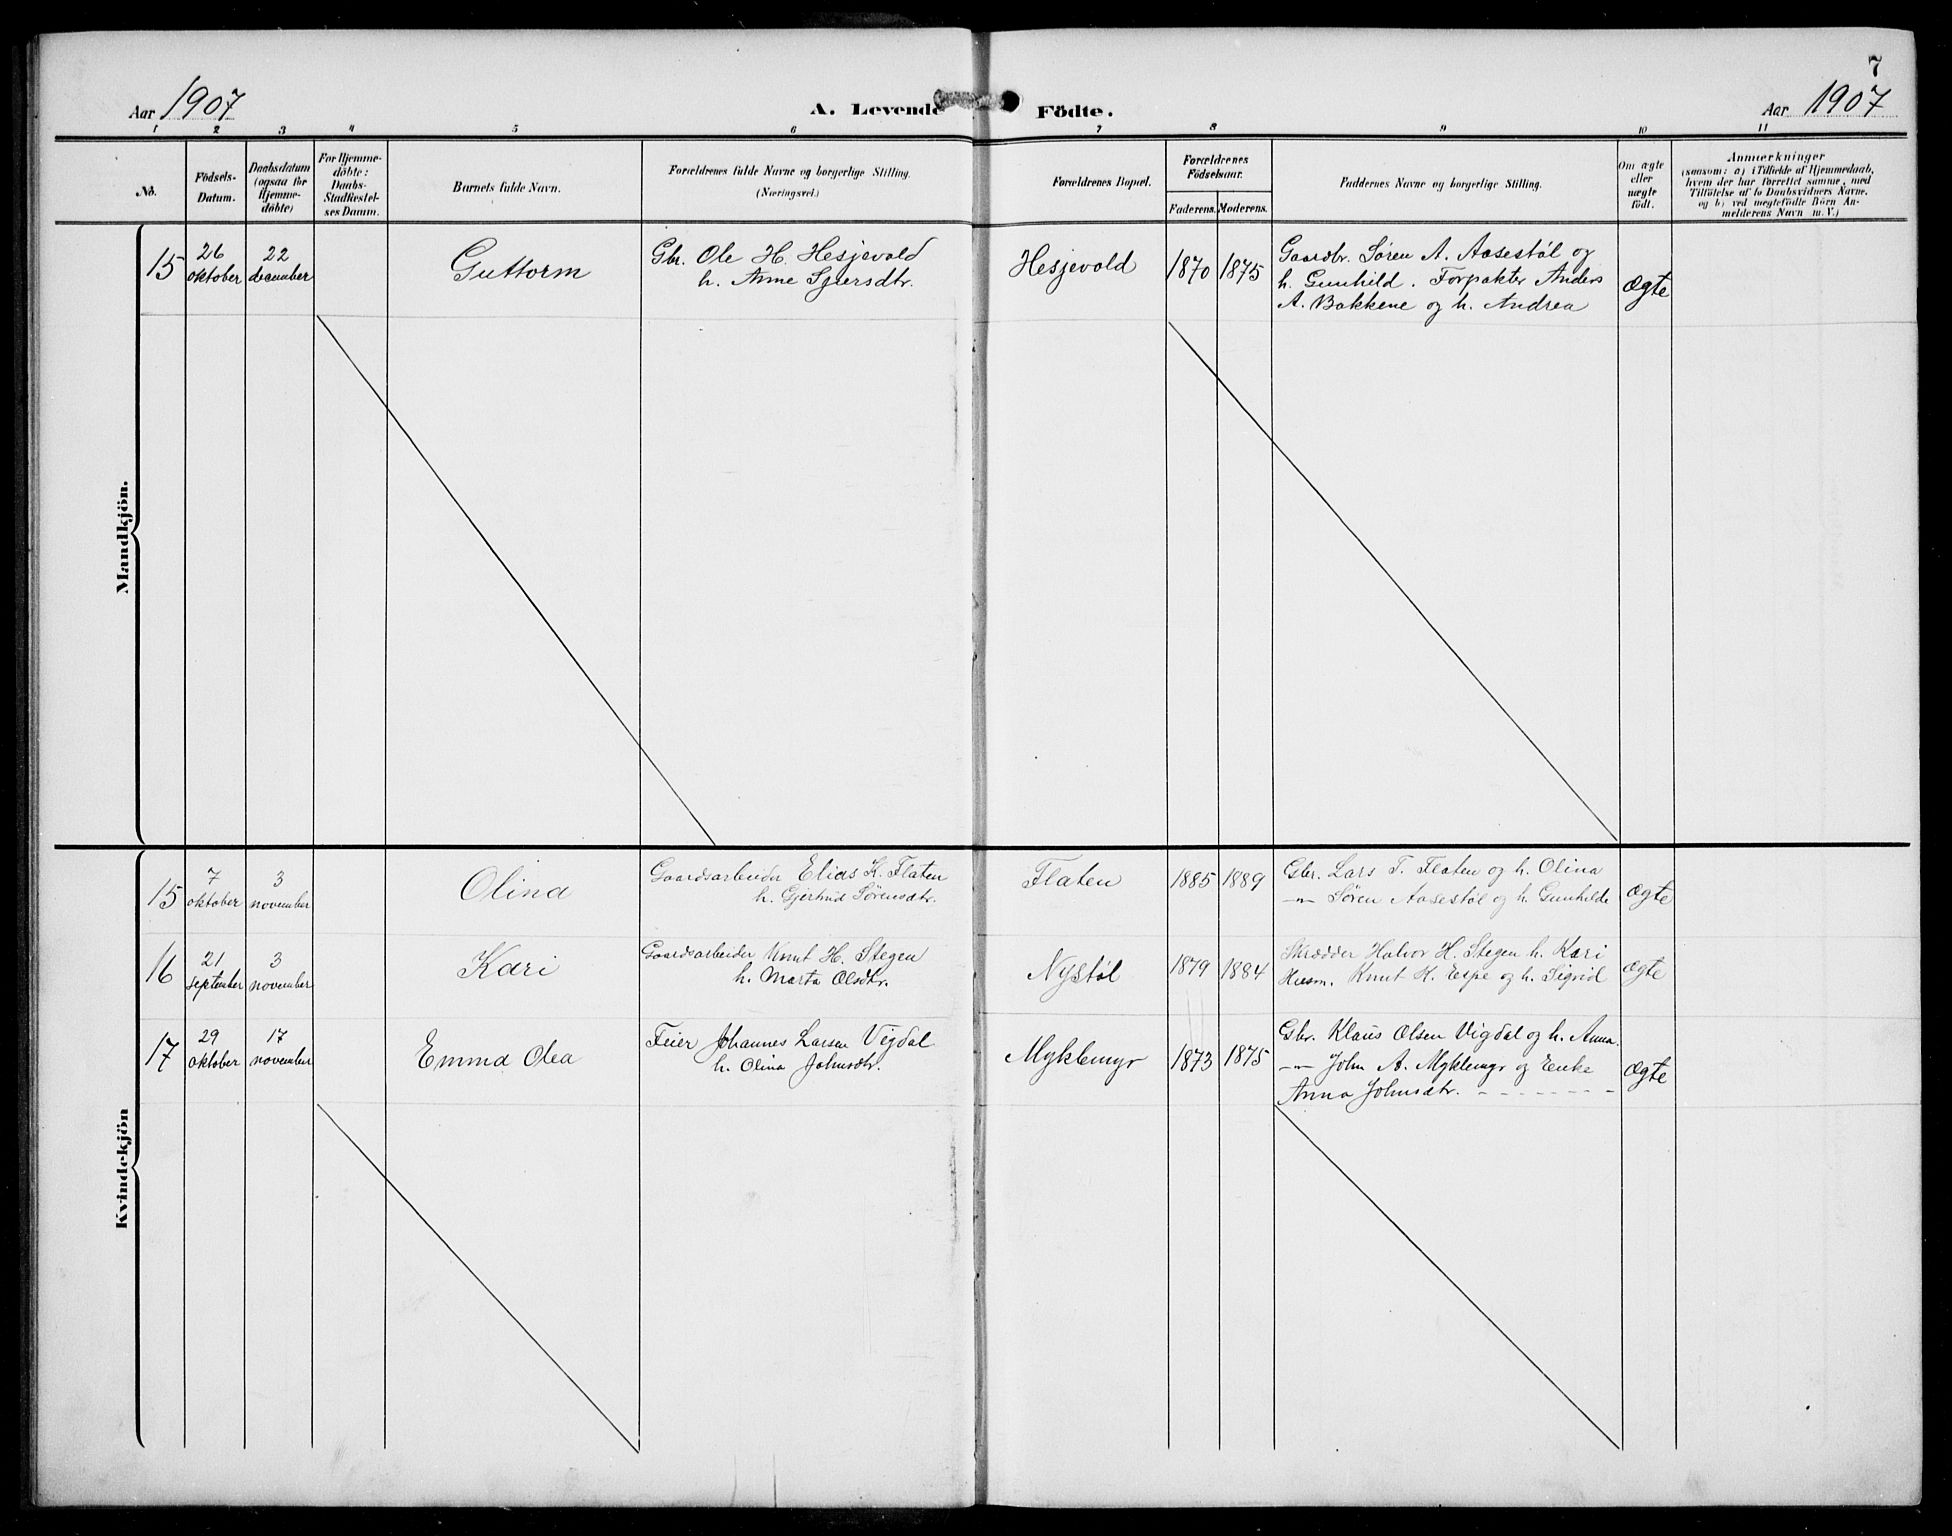 7
Aar 1907
A. Levende Födte.
Aar 1907
1 2 3 4 5 6 7 8 9 10 11
No.
Födsels-
Datum.
Daabsdatum
(ogsaa for
Hjemme-
döbte)
For Hjemme-
döbte:
Daabs-
Stadfæstel-
ses Datum.
Barnets fulde Navn.
Forældrenes fulde Navne og borgerlige Stilling.
(Næringsvei.)
Forældrenes Bopæl.
Forældrenes
Födselsaar.
Faderens. Moderens.
Faddernes Navne og borgerlige Stilling.
Om ægte
eller
uægte
födt.
Anmærkninger
(saasom: a) i Tilfælde af Hjemmedaab,
hvem der har forrettet samme, med
Tilföielse af to Daabsvidners Navne.
og b) ved uægtefödte Börn An-
melderens Navn m. V.)
Mandkjön.
15
26
oktober
22
december
Guttorm
Gbr. Ole H. Hesjevold
h. Anne Sjursdtr.
Hesjevold
1870 1875
Gaardbr. Søren A. Aasestøl og
h. Gunhild. Forpakter Anders
A. Bakkene og h. Andrea
ægte
Kvindekjön
15
7
oktober
3
november
Olina
Gaardsarbeider Elias K. Flaten
h. Gjertrud Sørensdtr.
Flaten
1885 1889
Gbr. Lars T. Flaten og h. Olina
–"– Søren Aasestøl og h. Gunhilde
ægte
16
21
september
3
november
Kari
Gaardsarbeider Knut H. Stegen
h. Marta Olsdtr.
Nystøl
1879 1884
Skrædder Halvor H. Stegen h. Kari
Husm. Knut K. Espe og h. Sigrid
ægte
17
29
oktober
17
november
Emma Olea
Feier Johannes Larsen Vigdal
h. Olina Johnsdtr.
Myklemyr
1873 1875
Gbr. Klaus Olsen Vigdal og h. Anna.
–"– John A. Myklemyr og Enke
Anna Johnsdtr.
ægte